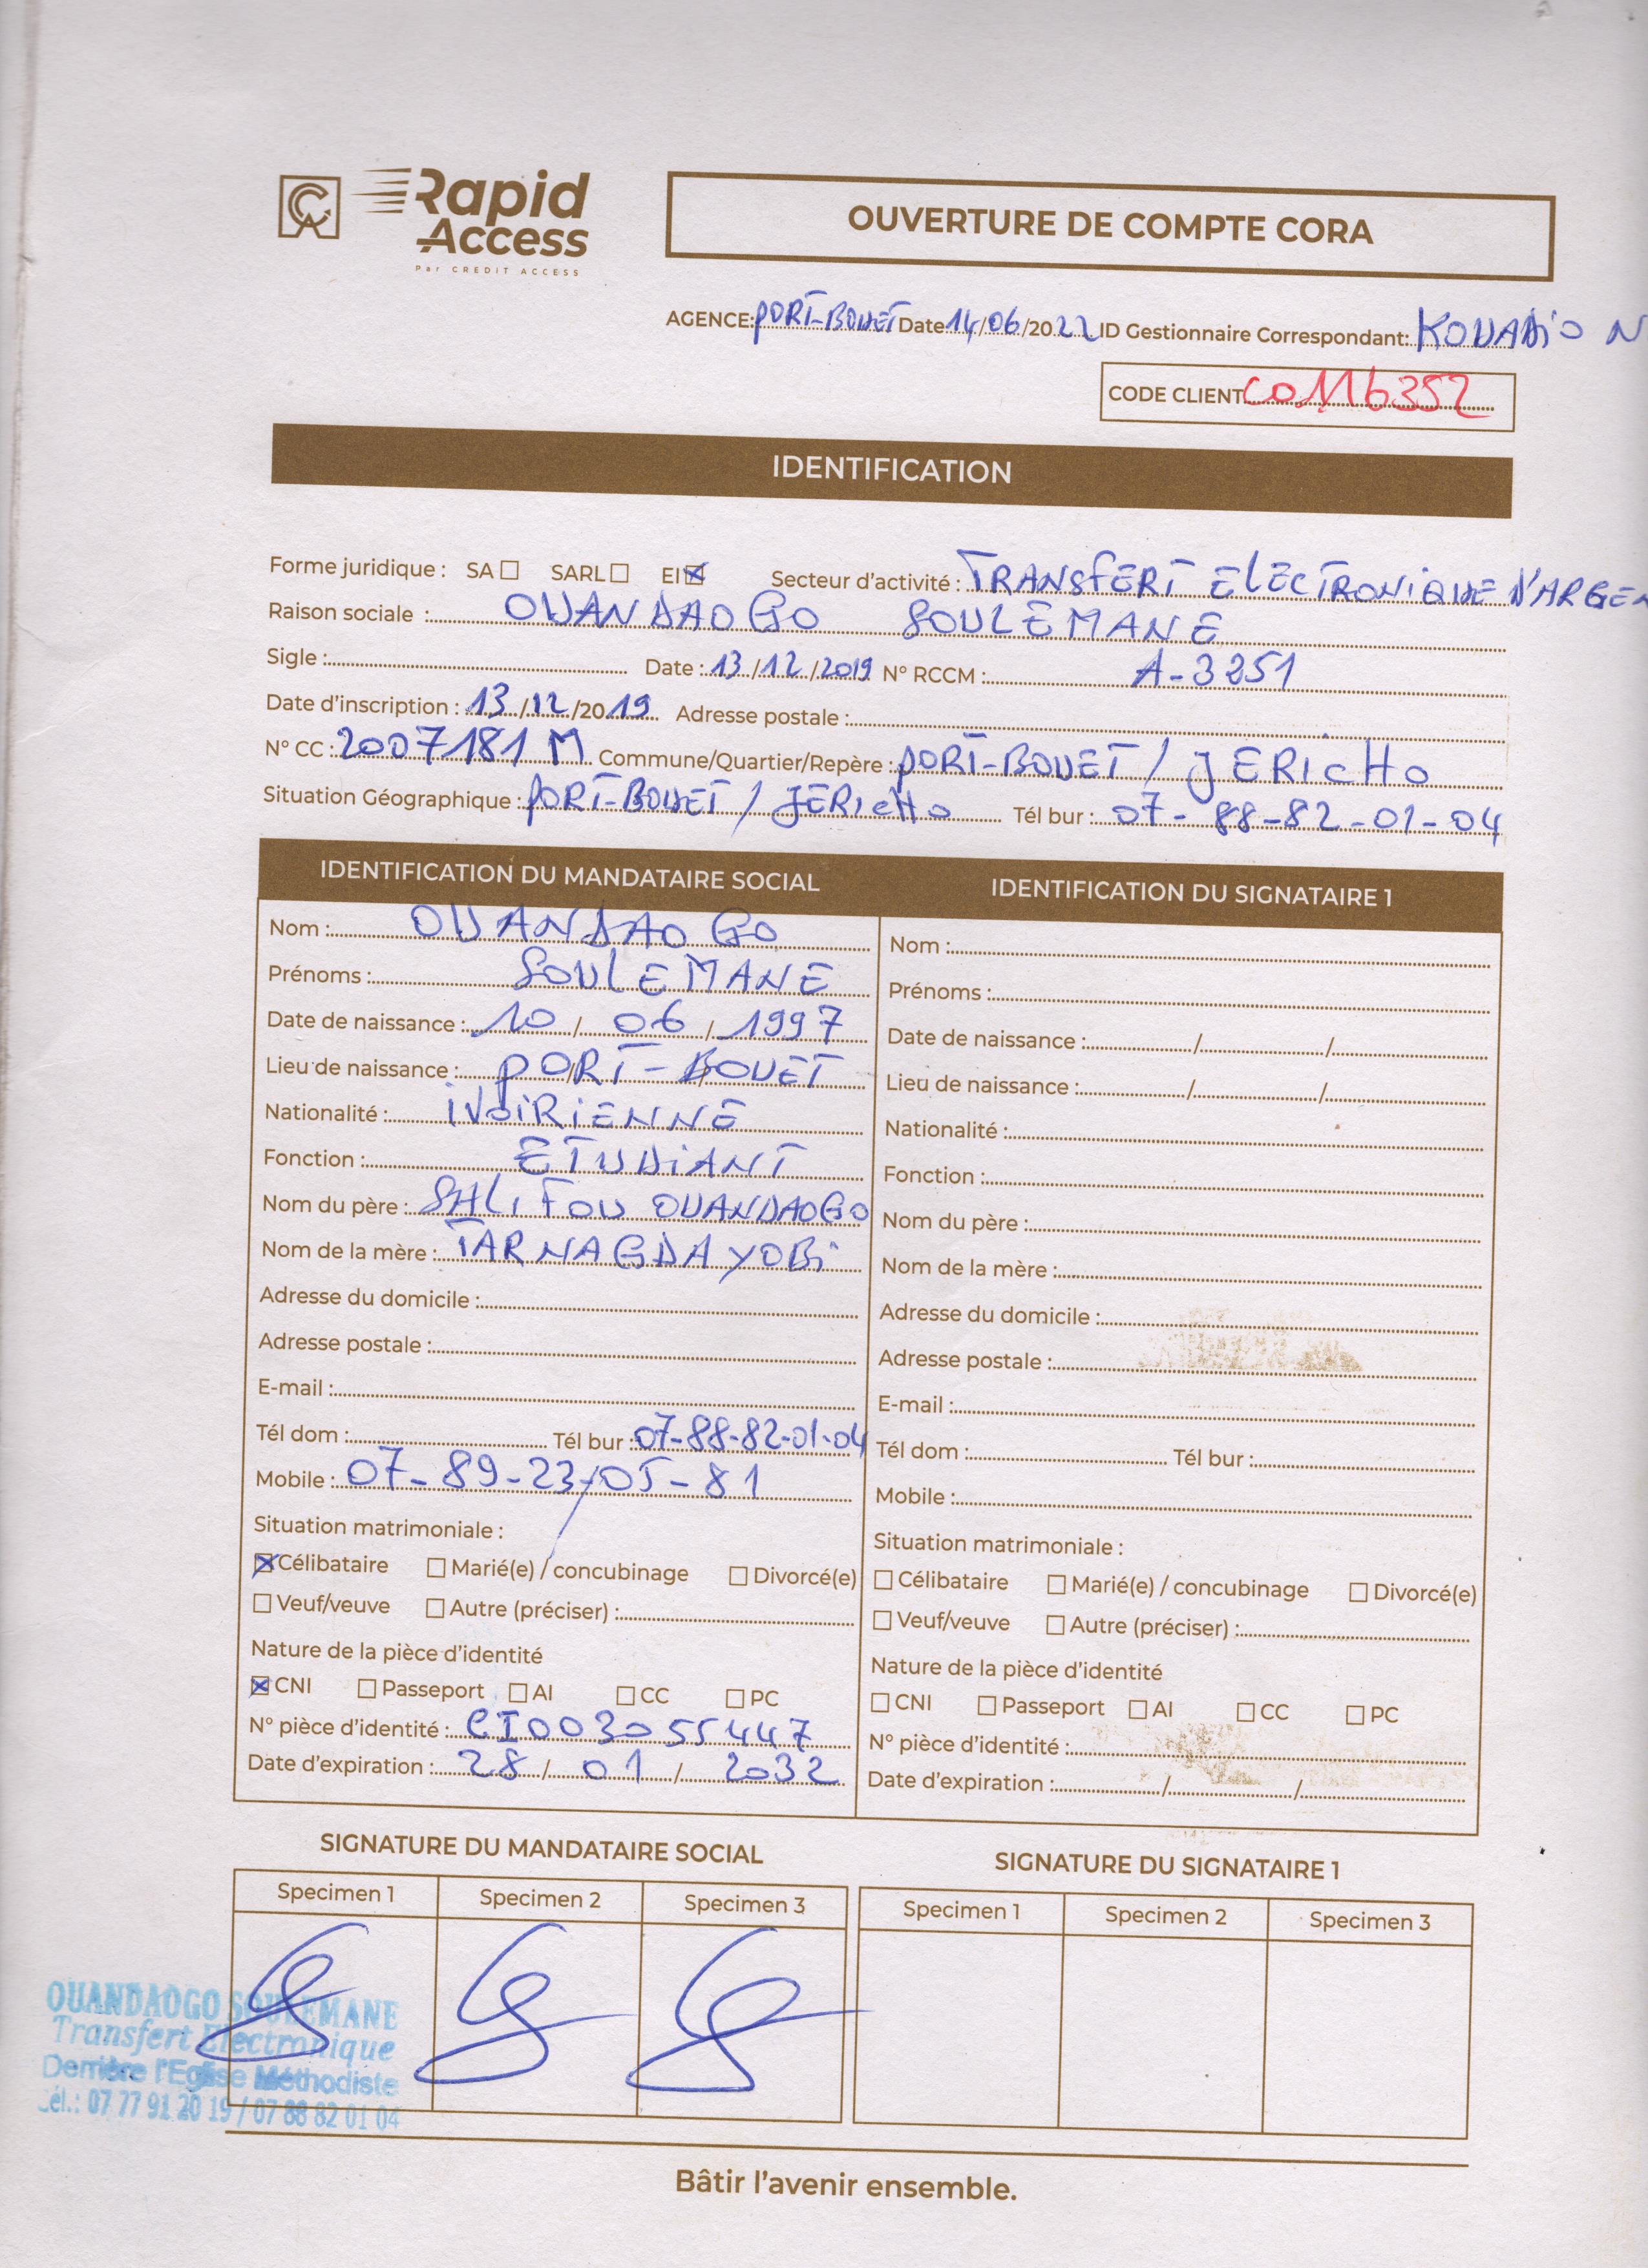 Rapid
Access
Par CREDIT ACCESS
OUVERTURE DE COMPTE CORA
AGENCE: PORT-BOUET Date 14/06/2022 ID Gestionnaire Correspondant: KOUADIO N
CODE CLIENT C0116352
IDENTIFICATION
Forme juridique : SA ☐ SARL ☐ EI ☒ Secteur d'activité : TRANSFERT ELECTRONIQUE D'ARGEN
Raison sociale : OUANDAOGO SOULEMANE
Sigle : Date : 13/12/2019 N° RCCM : A-3251
Date d'inscription : 13/12/2019 Adresse postale :
N° CC : 2007181 M Commune/Quartier/Repère : PORT-BOUET / JERICHO
Situation Géographique : PORT-BOUET / JERICHO Tél bur : 07-88-82-01-04
IDENTIFICATION DU MANDATAIRE SOCIAL
Nom : OUANDAOGO
Prénoms : SOULEMANE
Date de naissance : 10/06/1997
Lieu de naissance : PORT-BOUET
Nationalité : IVOIRIENNE
Fonction : ETUDIANT
Nom du père : SALIFOU OUANDAOGO
Nom de la mère : TARNAGDA YOBI
Adresse du domicile :
Adresse postale :
E-mail :
Tél dom : Tél bur : 07-88-82-01-04
Mobile : 07-89-23-05-81
Situation matrimoniale :
☒ Célibataire ☐ Marié(e) / concubinage ☐ Divorcé(e)
☐ Veuf/veuve ☐ Autre (préciser) :
Nature de la pièce d'identité
☒ CNI ☐ Passeport ☐ AI ☐ CC ☐ PC
N° pièce d'identité : CI003055447
Date d'expiration : 28/01/2032
IDENTIFICATION DU SIGNATAIRE 1
Nom :
Prénoms :
Date de naissance : / /
Lieu de naissance : / /
Nationalité :
Fonction :
Nom du père :
Nom de la mère :
Adresse du domicile :
Adresse postale :
E-mail :
Tél dom : Tél bur :
Mobile :
Situation matrimoniale :
☐ Célibataire ☐ Marié(e) / concubinage ☐ Divorcé(e)
☐ Veuf/veuve ☐ Autre (préciser) :
Nature de la pièce d'identité
☐ CNI ☐ Passeport ☐ AI ☐ CC ☐ PC
N° pièce d'identité :
Date d'expiration : / /
SIGNATURE DU MANDATAIRE SOCIAL
Specimen 1 Specimen 2 Specimen 3
SIGNATURE DU SIGNATAIRE 1
Specimen 1 Specimen 2 Specimen 3
OUANDAOGO SOULEMANE
Transfert Electronique
Derrière l'Eglise Méthodiste
Tél.: 07 77 91 20 19 / 07 88 82 01 04
Bâtir l'avenir ensemble.